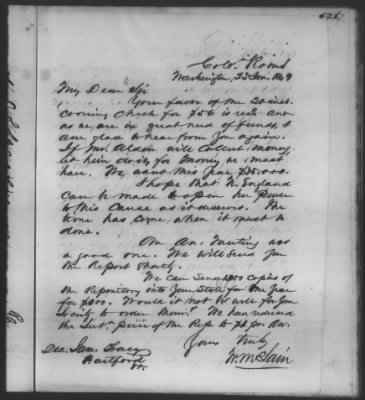 Colo. Rooms
Washington, Jan. 1849
My Dear Sir
Your favor of the 20 inst.
covering check for $56 is recd. and
as we are in great need of funds, I
am glad to hear from you again.
If Mr. Alden will collect money,
let him do it; for money we must
have. We want this year
I hope that N. England
can be made to open her purse
to this Cause as it deserves. The
time has come, when it must be
done.
Our An. Meeting was
a good one. We will send you
the Report shortly.
We can send copies of
the Repository into your State for one year
for Would it not be well for your
Society to order them? We have reduced
the Sub. price of the Rep. to $1 per An.
Yours truly
W. McLain
Dea. Sam. Tracy
Hartford
Ct.